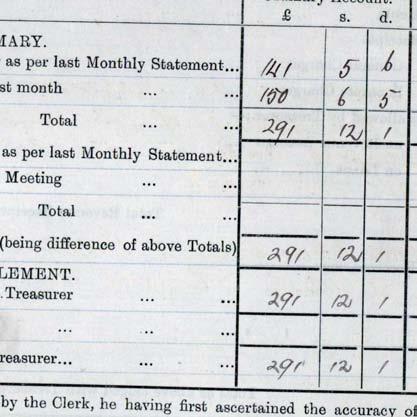 Account.
£ s. d.
MARY.
as per last Monthly Statement... 141 5 8
st month ... ... 150 6 5
Total ... ... 291 12 1
as per last Monthly Statement...
Meeting ... ...
Total ... ...
(being difference of above Totals) 291 12 1
LEMENT.
Treasurer ... ... 291 12 1
... ... ...
reasurer... ... ... 291 12 1
by the Clerk, he having first ascertained the accuracy of